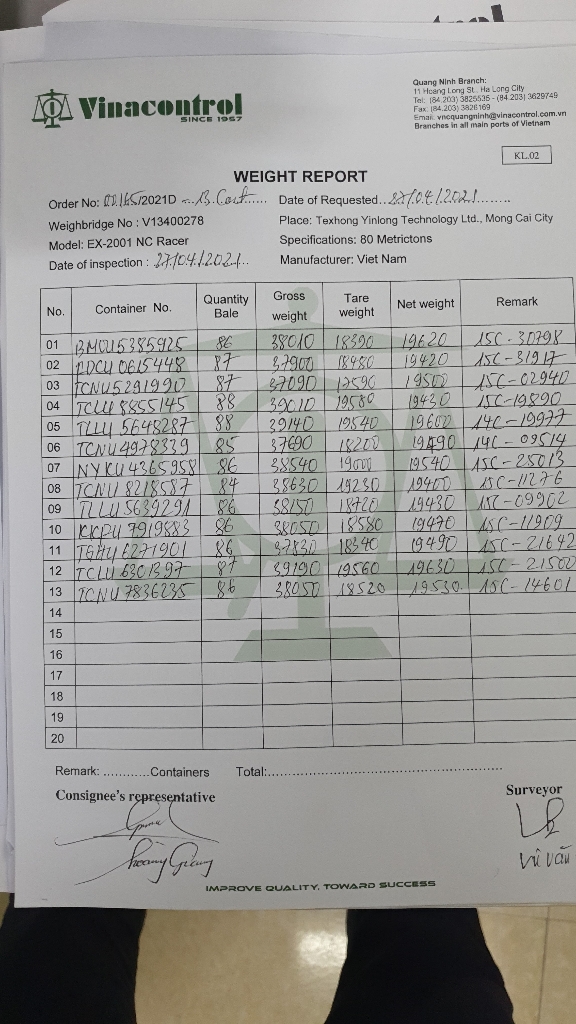 Vinacontrol
SINCE 1957
Quang Ninh Branch:
11 Hoang Long St., Ha Long City
Tel: (84.203) 3825535 - (84.203) 3629749
Fax: (84.203) 3826169
Email: vncquangninh@vinacontrol.com.vn
Branches in all main ports of Vietnam
KL.02
WEIGHT REPORT
Order No: /2021D Date of Requested 27/04/2021
Weighbridge No : V13400278 Place: Texhong Yinlong Technology Ltd., Mong Cai City
Model: EX-2001 NC Racer Specifications: 80 Metrictons
Date of inspection : 27/04/2021 Manufacturer: Viet Nam
No. Container No. Quantity Bale Gross weight Tare weight Net weight Remark
01 BMOU5385925 86 38010 18390 19620 15C-30798
02 0615448 87 37900 18480 19420 15C-31917
03 TCNU5291990 87 37090 17590 19500 15C-02940
04 TCLU8855145 88 39010 19580 19430 15C-19890
05 TLLU5648287 88 39140 19540 19600 14C-19977
06 TCNU4978339 85 37690 18200 19490 14C-09514
07 NYKU4365958 86 38540 19000 19540 15C-25013
08 TCNU8218587 84 38630 19230 19400 15C-11276
09 TLLU5639291 86 38150 18720 19430 15C-09902
10 KKFU7919883 86 38050 18580 19470 15C-11909
11 TGHU6271901 86 37830 18340 19490 15C-21642
12 TCLU6301397 87 39190 19560 19630 15C-21500
13 TCNU7836235 86 38050 18520 19530 15C-14601
14
15
16
17
18
19
20
Remark: ............Containers Total:..........................................................
Consignee's representative Surveyor
Hoàng Giang Vũ Văn
IMPROVE QUALITY, TOWARD SUCCESS